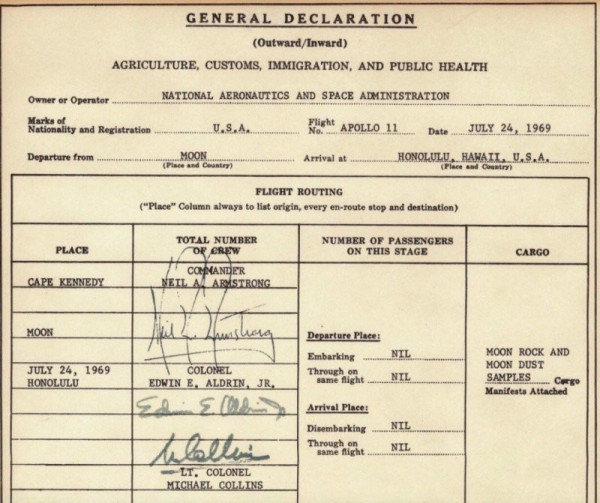 GENERAL DECLARATION
(Outward/Inward)
AGRICULTURE, CUSTOMS, IMMIGRATION, AND PUBLIC HEALTH
Owner or Operator NATIONAL AERONAUTICS AND SPACE ADMINISTRATION
Marks of Nationality and Registration U.S.A. Flight No. APOLLO 11 Date JULY 24, 1969
Departure from MOON Arrival at HONOLULU, HAWAII, U.S.A.
(Place and Country) (Place and Country)
FLIGHT ROUTING
("Place" Column always to list origin, every en-route stop and destination)
PLACE
TOTAL NUMBER
OF CREW
NUMBER OF PASSENGERS
ON THIS STAGE
CARGO
CAPE KENNEDY
MOON
JULY 24, 1969
HONOLULU
COMMANDER
NEIL A. ARMSTRONG
Neil A. Armstrong
COLONEL
EDWIN E. ALDRIN, JR.
Edwin E. Aldrin Jr
M Collins
LT. COLONEL
MICHAEL COLLINS
Departure Place:
Embarking NIL
Through on
same flight NIL
Arrival Place:
Disembarking NIL
Through on
same flight NIL
MOON ROCK AND
MOON DUST
SAMPLES Cargo
Manifests Attached